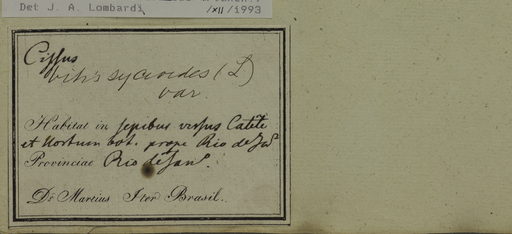 Det J. A. Lombardi /XII/1993
Cissus
vitis sycioides (L)
var.
Habitat in sepibus versus Catete
et Hortum bot. prope Rio de Jan°
Provinciae Rio de Jan°.
Dr Martius Iter Brasil.